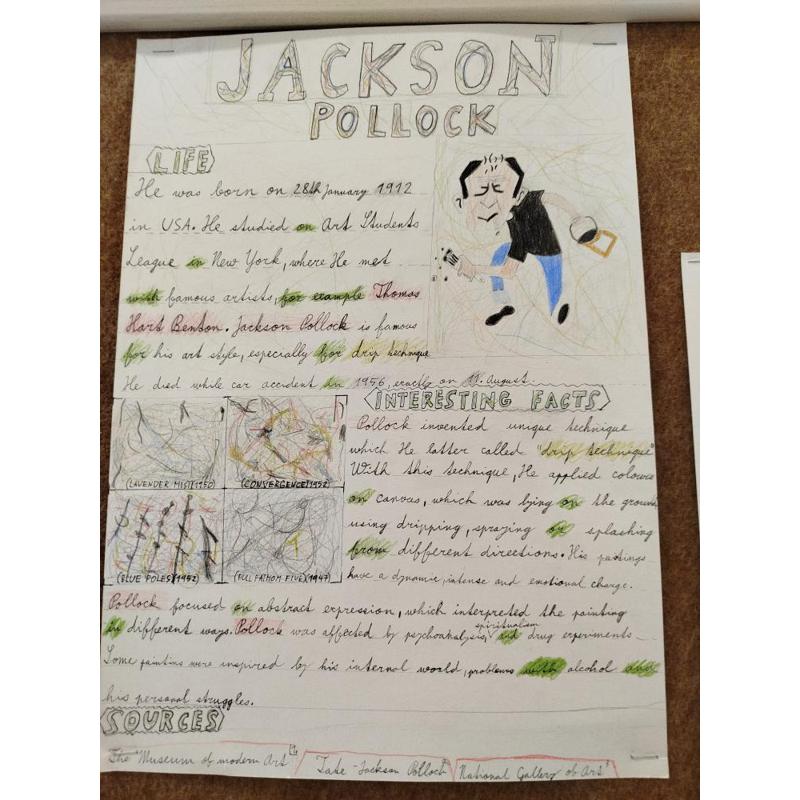 JACKSON
POLLOCK
LIFE
He was born on 28th January 1912
in USA. He studied on Art Students
League in New York, where He met
with famous artists, for example Thomas
Hart Benton. Jackson Pollock is famous
for his art style, especially for drip technique
He died while car accident in 1956, exactly on 11. August.
(LAVENDER MIST)(1950)
(CONVERGENCE)(1952)
(BLUE POLES)(1952)
(FULL FATHOM FIVE)(1947)
INTERESTING FACTS
Pollock invented unique technique
which He latter called "drip technique"
With this technique, He applied colours
on canvas, which was lying on the ground
using dripping, spraying or splashing
from different directions. His paitings
have a dynamic, intense and emotional charge.
Pollock focused on abstract expression, which interpreted the painting
in different ways. Pollock was affected by psychoanalysis, spiritualism and drug experiments
Some paintins were inspired by his internal world, problems with alcohol and
his personal struggles.
SOURCES
The "Museum of modern Art"
Tate - Jackson Pollock
National Gallery of Art"